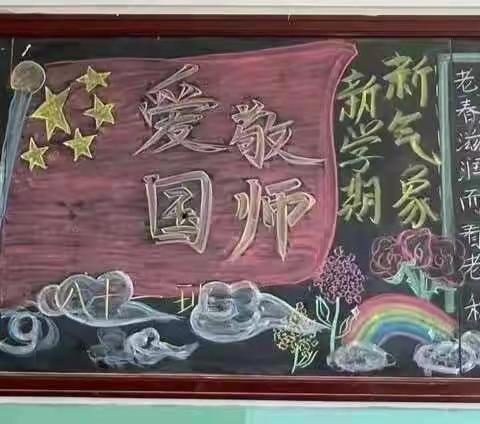 爱国
敬师
新学期
新气象
老春滋润而看老
八十一班